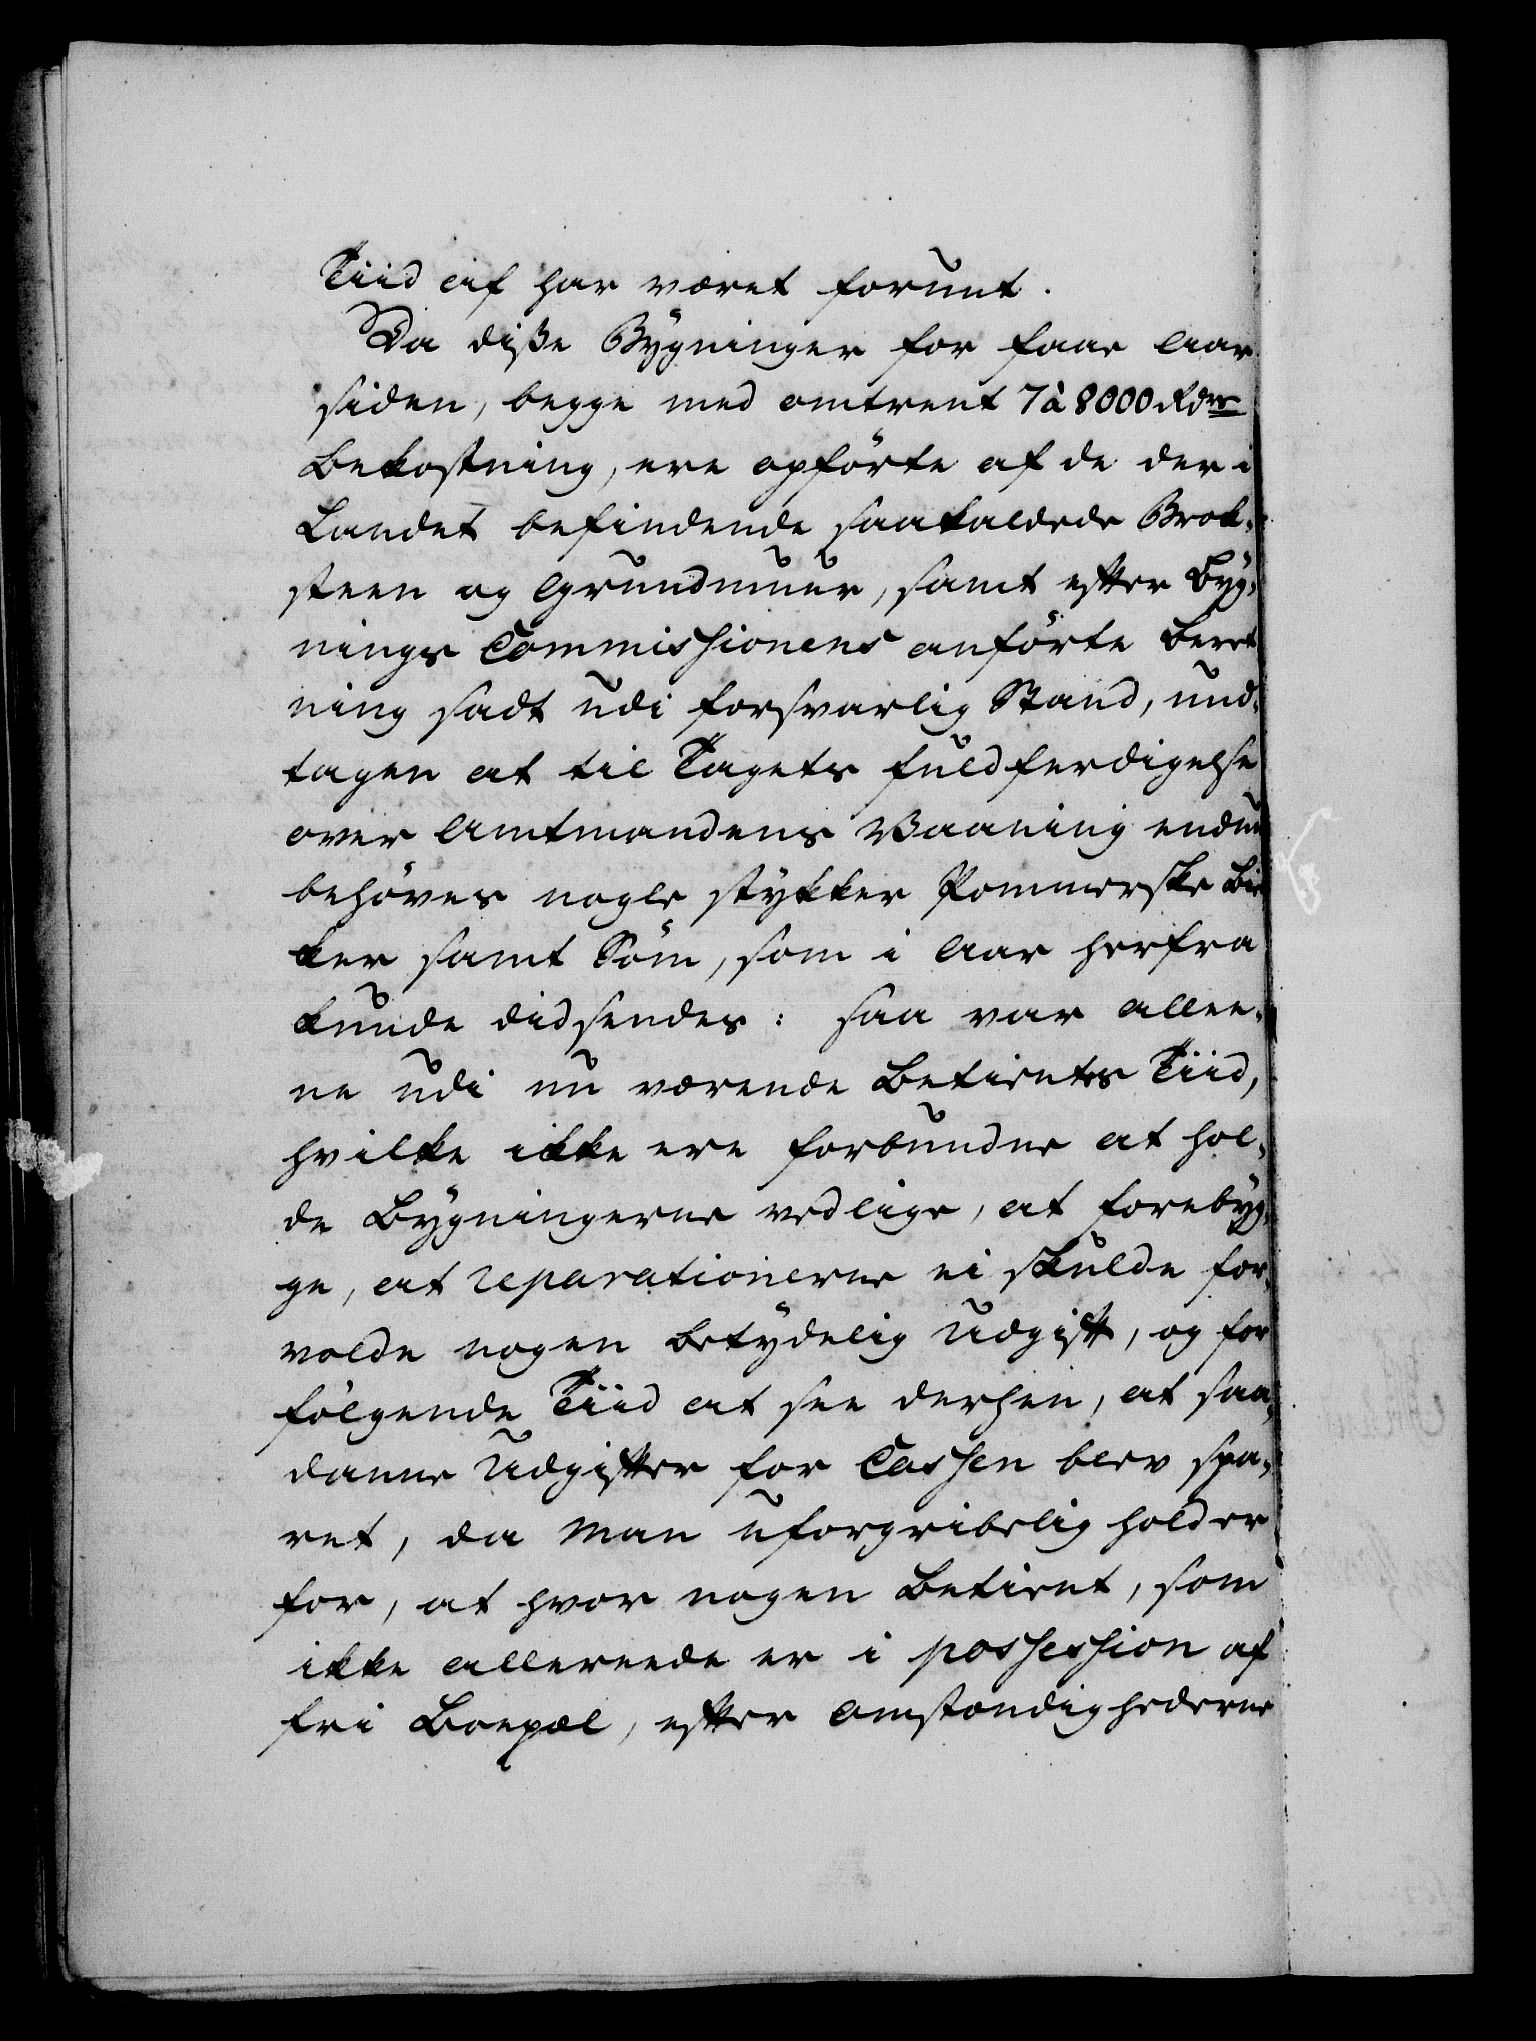 Tiid af har været forunt.
Da disse Bygninger for faae Aar
siden, begge med omtrent 7 à 8000 Rdr
Bekostning, ere opförte af de der i
Landet befindende saakaldede Brok¬
steen og Grundmuur, samt efter Byg¬
nings Commissionens anförte Beret
ning sadt udi forsvarlig Stand, und¬
tagen at til Tagets fuldferdigelse
over Amtmandens Vaaning endnu
behöves nogle stykker Pommerske Biel
ker samt Söm, som i Aar herfra
kunde didsendes: saa var allee¬
ne udi nu værende Betientes Tiid,
hvilke ikke ere forbundne at hol¬
de Bygningerne vedlige, at forebyg¬
ge, at reparationerne ei skulde for¬
volde nogen betydelig Udgift, og for
fölgende Tiid at see derhen, at saa¬
danne Udgifter for Cassen blev spa¬
ret, da man uforgribelig holder
for, at hvor nogen Betient, som
ikke allereede er i possession af
fri Boepæl, efter Omstændighederne